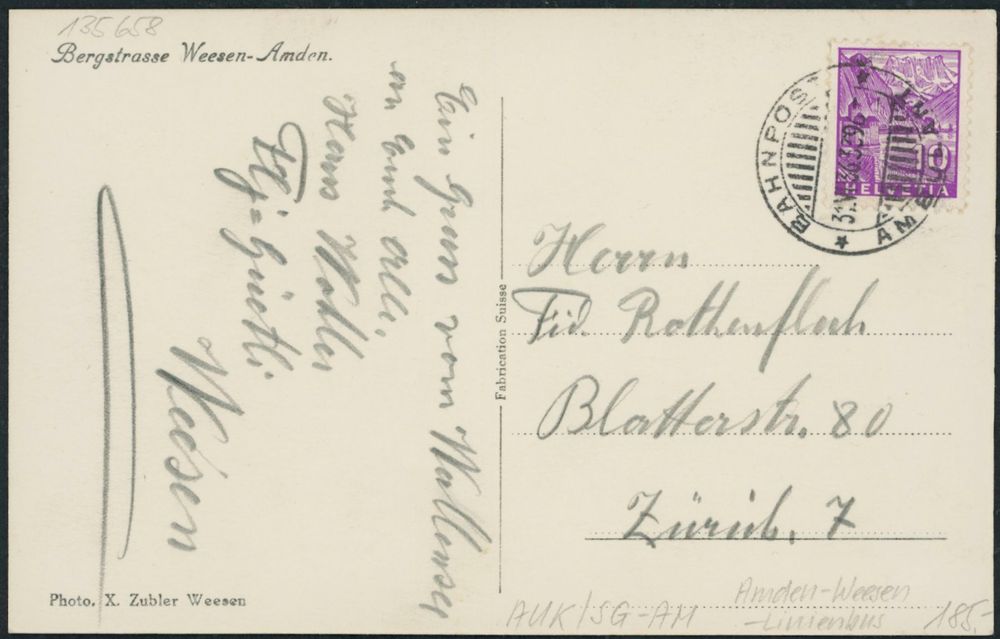 135658
Bergstrasse Weesen-Amden.
Ein Gruss vom Wallensee
an Euch alle.
Hans Walter
Weesen
Fabrication Suisse
Photo. X. Zubler Weesen
BAHNPOST
AMBULANT
10
HELVETIA
Herrn
Fid. Rothenflach
Blatterstr. 80
Zürich, 7
AUK/SG-AM
Amden-Weesen
-Linienbus
185,-